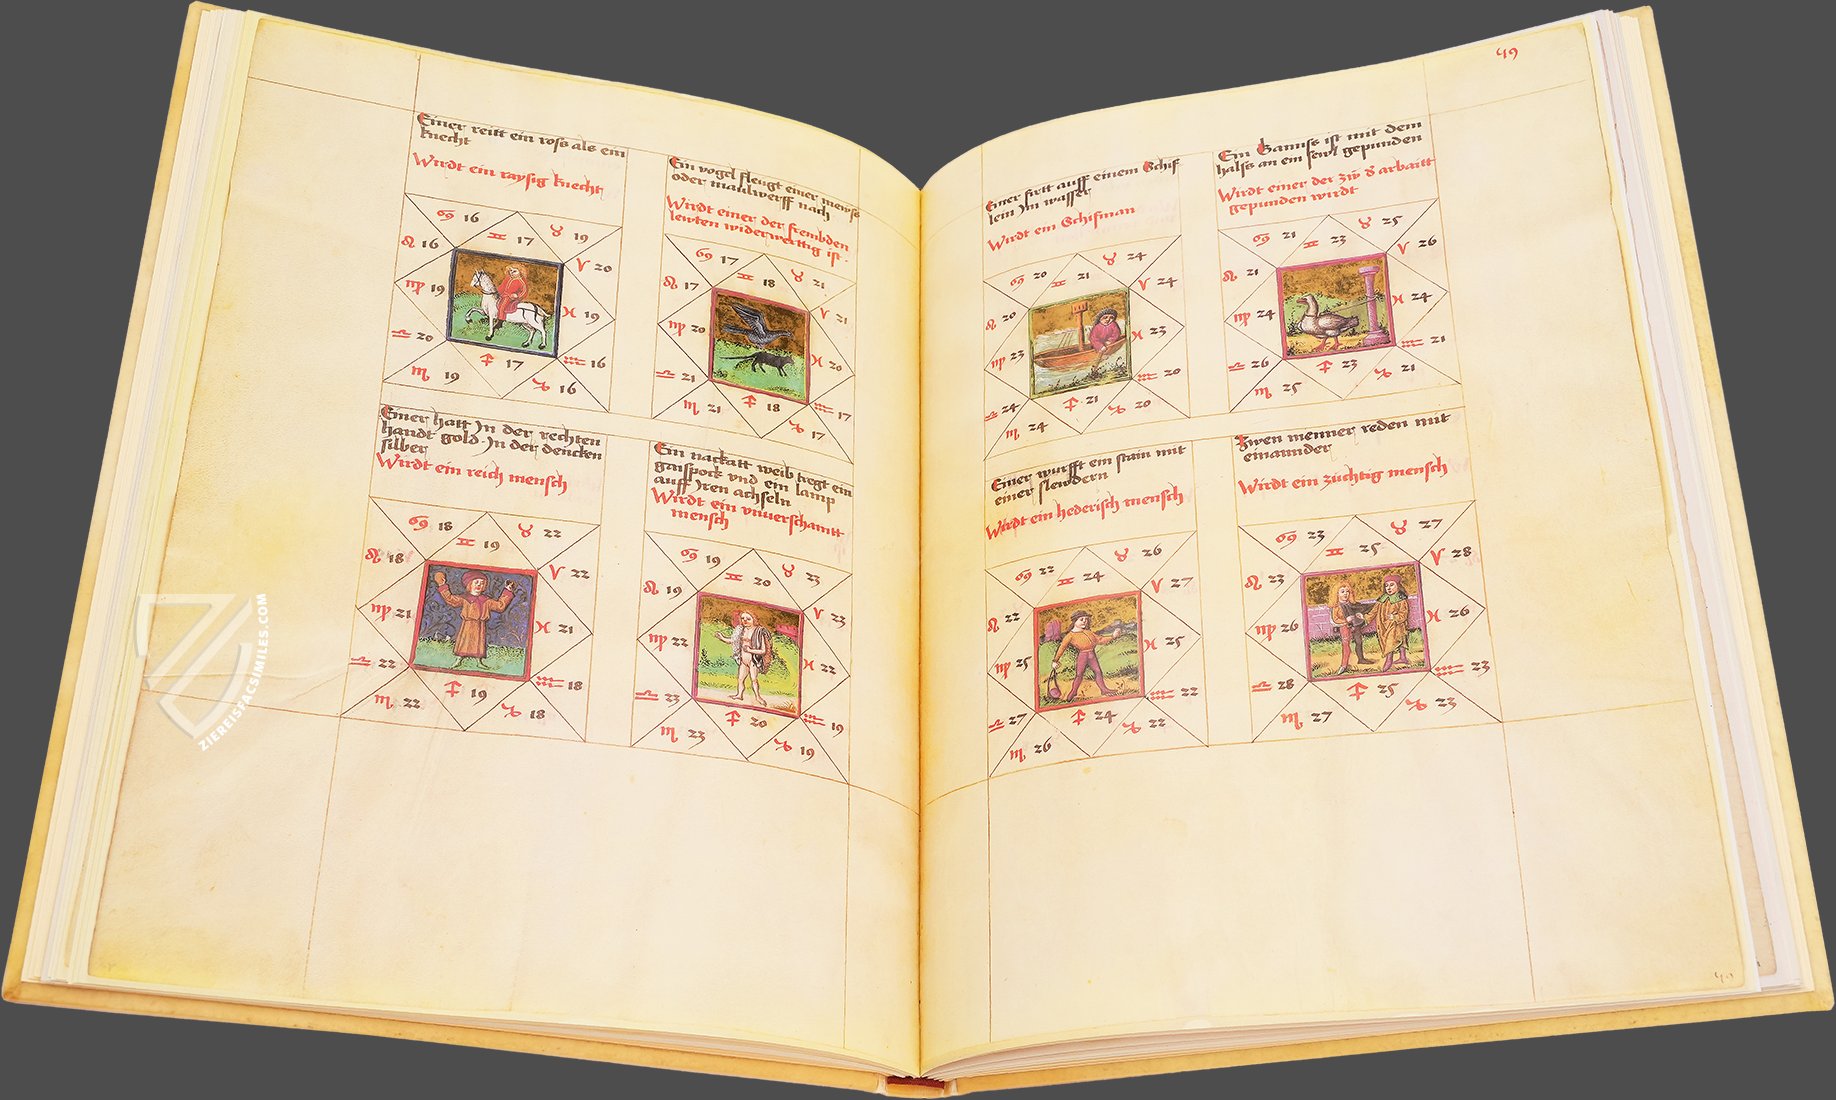 49
Einer reitt ein ross als ein
knecht
Wirdt ein raysig knecht
♋ 16 ♊ 17 ♉ 19
♌ 16 ♈ 20
♍ 19 ♓ 19
♎ 20 ♒ 16
♏ 19 ♐ 17 ♑ 16
Ein vogel fleugt einer mewss
oder maulwerff nach
Wirdt einer der frembden
lewten widerwerttig ist.
♋ 17 ♊ 18 ♉ 21
♌ 17 ♈ 21
♍ 20 ♓ 20
♎ 21 ♒ 17
♏ 21 ♐ 18 ♑ 17
Einer hatt Jn der rechten
handt gold Jn der dencken
silber
Wirdt ein reich mensch
♋ 18 ♊ 19 ♉ 22
♌ 18 ♈ 22
♍ 21 ♓ 21
♎ 22 ♒ 18
♏ 22 ♐ 19 ♑ 18
Ein nackatt weib tregt ein
gaispock vnd ein lamp
auff Jren achseln
Wirdt ein vnverschamtt
mensch
♋ 19 ♊ 20 ♉ 23
♌ 19 ♈ 23
♍ 22 ♓ 22
♎ 23 ♒ 19
♏ 23 ♐ 20 ♑ 19
Einer furtt auff einem Schif
lein Jm wasser
Wirdt ein Schifman
♋ 20 ♊ 21 ♉ 24
♌ 20 ♈ 24
♍ 23 ♓ 23
♎ 24 ♒ 20
♏ 24 ♐ 21 ♑ 20
Ein Ganns ist mit dem
halss an ein sewl gepunden
Wirdt einer der zw d arbaitt
gepunden wirdt
♋ 21 ♊ 23 ♉ 25
♌ 21 ♈ 26
♍ 24 ♓ 24
♎ 26 ♒ 21
♏ 25 ♐ 23 ♑ 21
Einer wurfft ein stain mit
einer slewdern
Wirdt ein hederisch mensch
♋ 22 ♊ 24 ♉ 26
♌ 22 ♈ 27
♍ 25 ♓ 25
♎ 27 ♒ 22
♏ 26 ♐ 24 ♑ 22
Zwen menner reden mit
einaunder
Wirdt ein zuchtig mensch
♋ 23 ♊ 25 ♉ 27
♌ 23 ♈ 28
♍ 26 ♓ 26
♎ 28 ♒ 23
♏ 27 ♐ 25 ♑ 23
49
ZIEREISFACSIMILES.COM